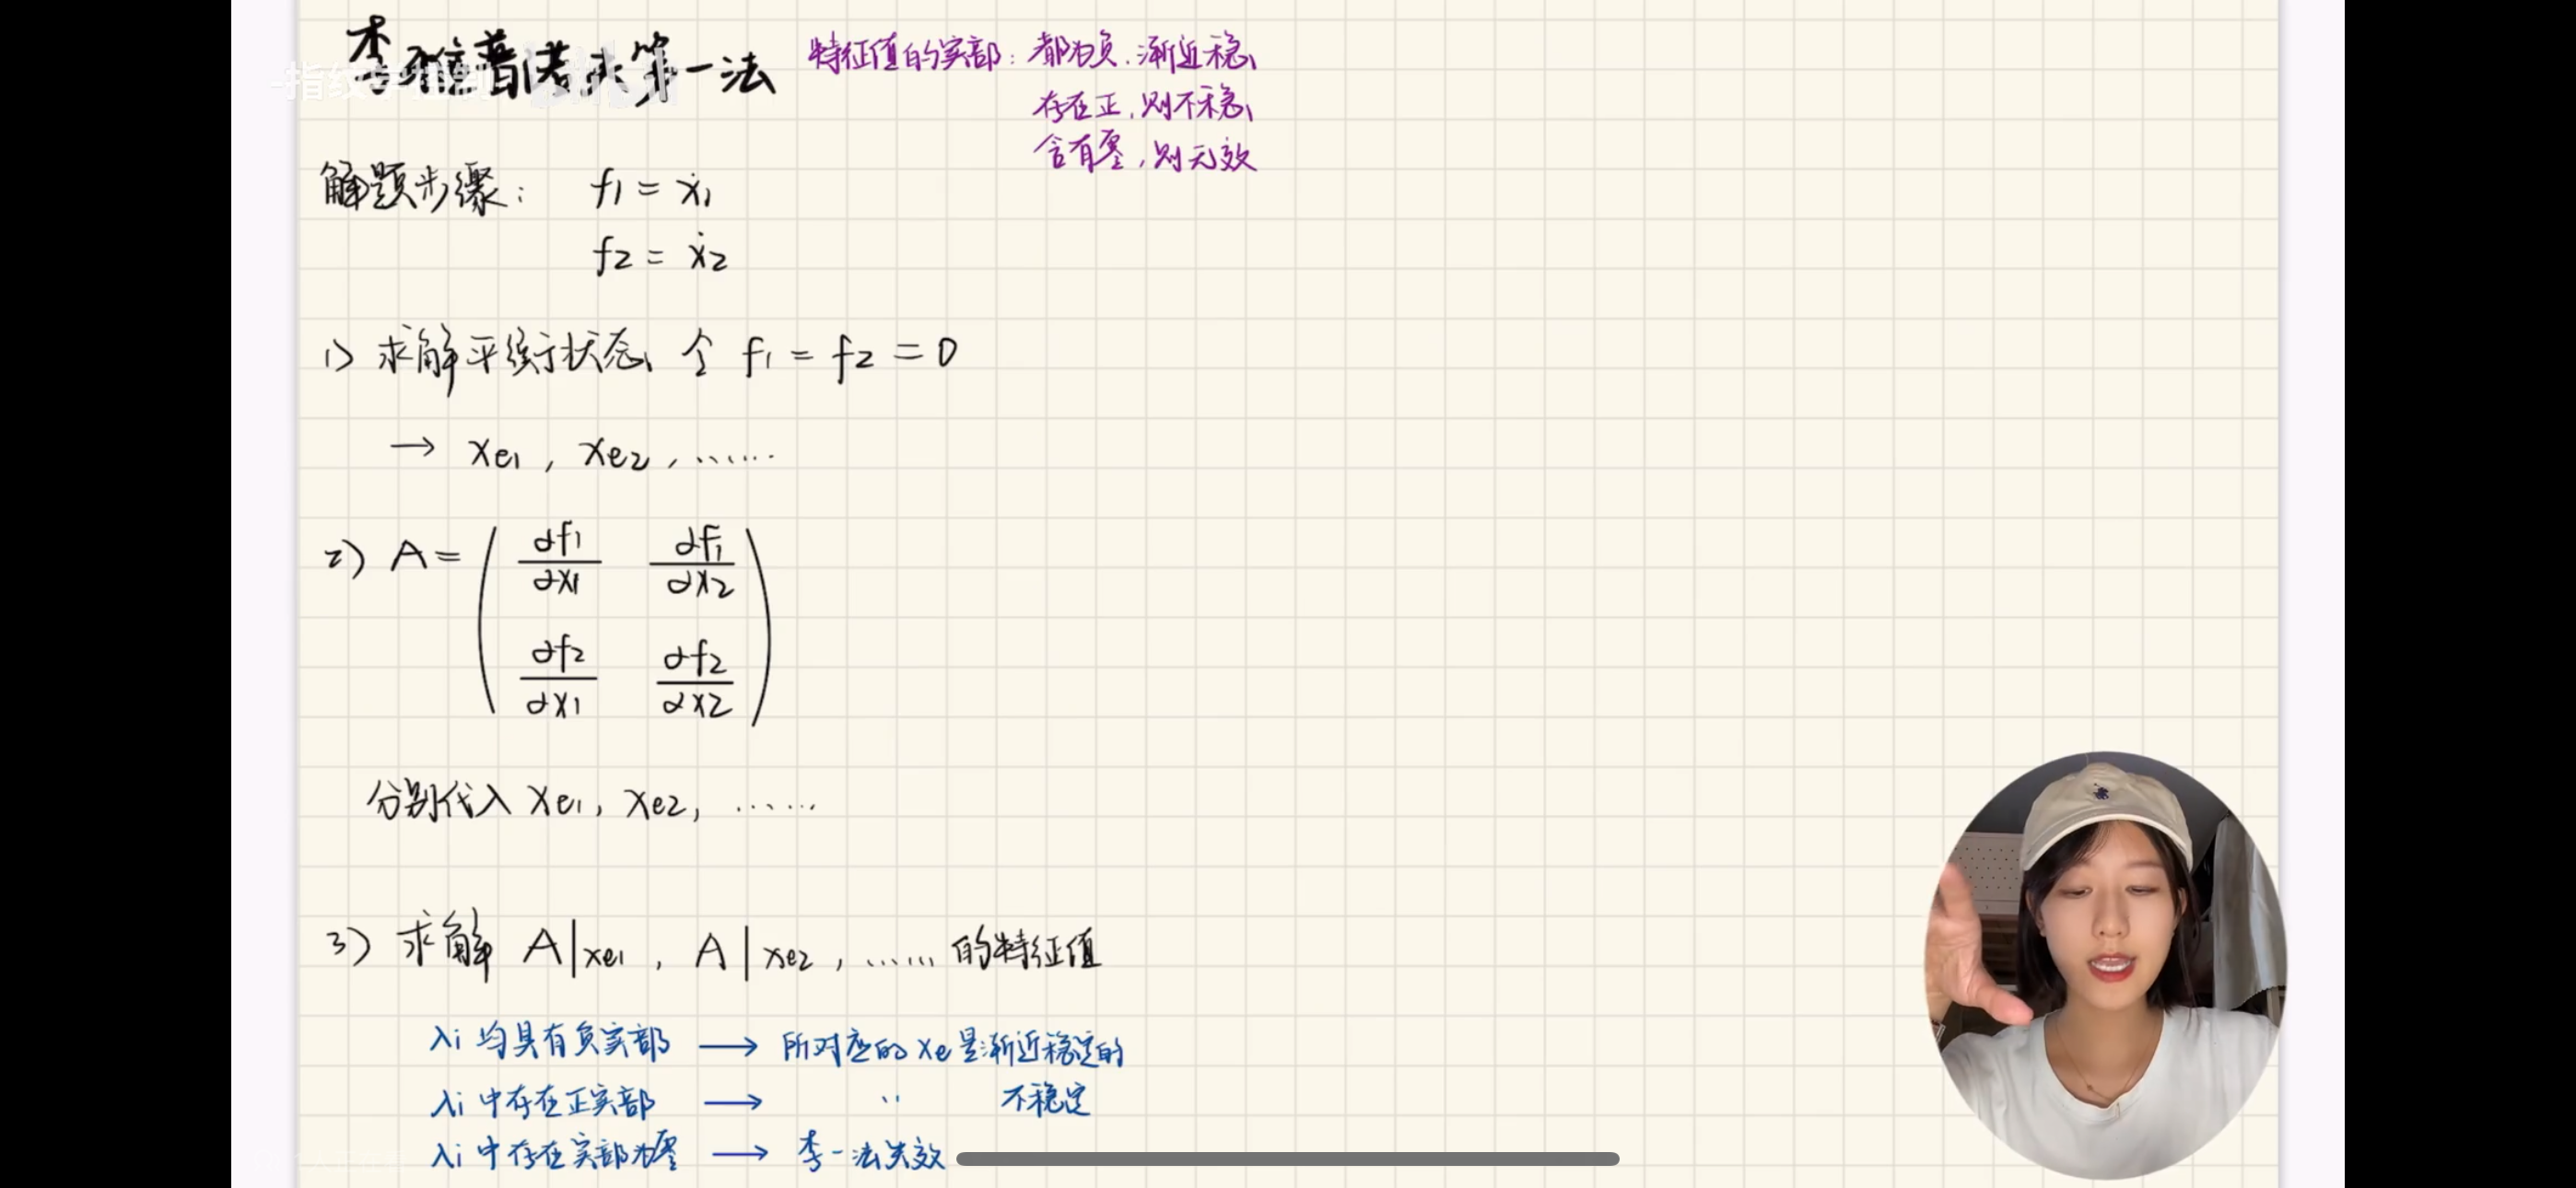 李雅普诺夫第一法
特征值的实部：都为负，渐近稳
存在正，则不稳
含有零，则无效
解题步骤： f1 = ẋ1
f2 = ẋ2
1) 求解平衡状态 令 f1 = f2 = 0
→ xe1 , xe2 , ……
2) A = ( ∂f1/∂x1 ∂f1/∂x2
∂f2/∂x1 ∂f2/∂x2 )
分别代入 xe1, xe2, ……
3) 求解 A|xe1 , A|xe2 , …… 的特征值
λi 均具有负实部 → 所对应的 xe 是渐近稳定的
λi 中存在正实部 → 〃 不稳定
λi 中存在实部为零 → 李一法失效